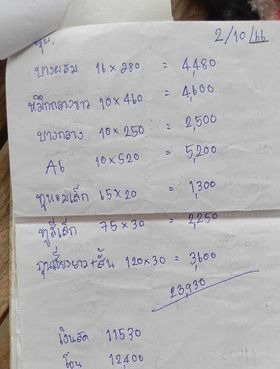 2/10/66
บางผสม 16 × 280 = 4,480
หมึกกลางขาว 10 × 460 = 4,600
บางกลาง 10 × 250 = 2,500
A6 10 × 520 = 5,200
หูหอมเล็ก 65 × 20 = 1,300
หูสีเล็ก 75 × 30 = 2,250
กุนเชียงยาว+สั้น 120 × 30 = 3,600
23,930
เงินสด 11530
โอน 12,400